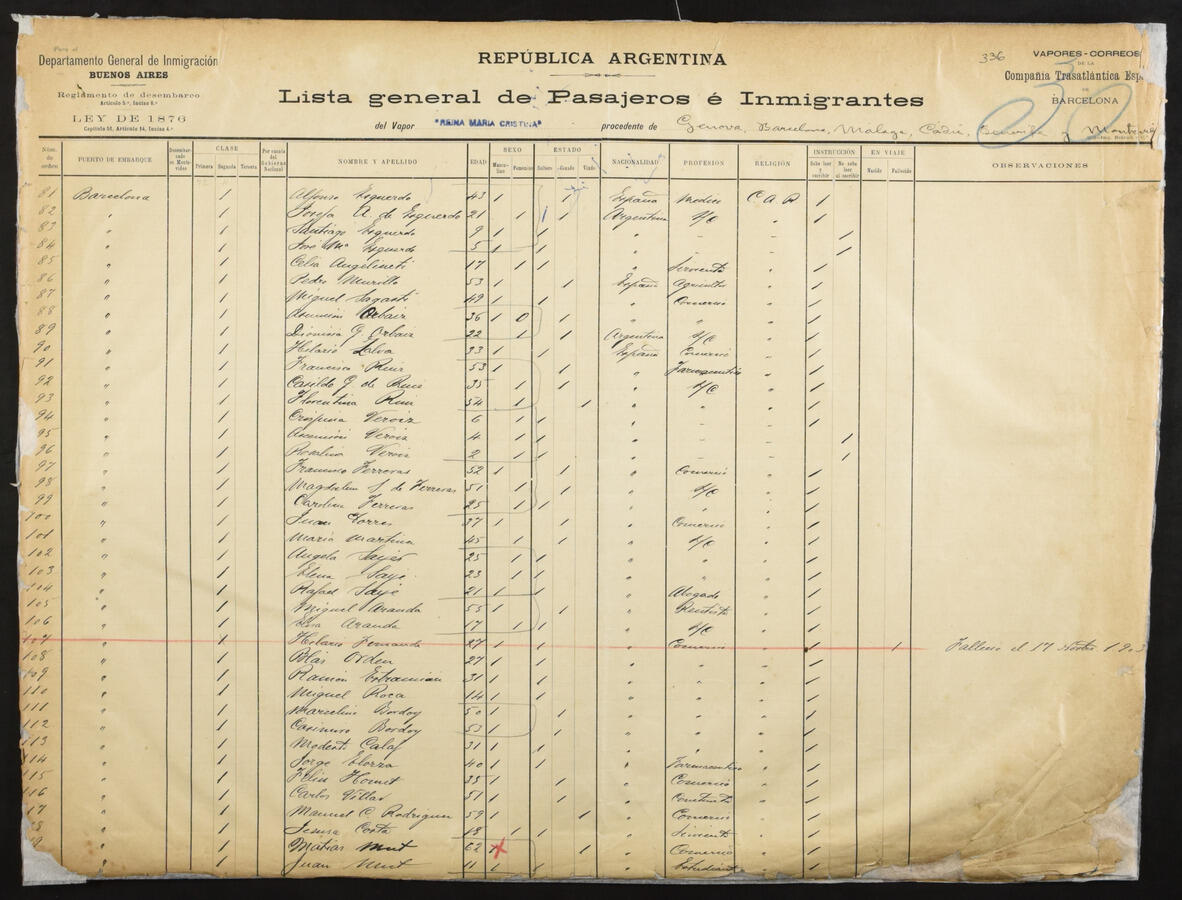 Para el
Departamento General de Inmigración
BUENOS AIRES
Reglamento de desembarco
Artículo 5º, Inciso 6º
LEY DE 1876
Capítulo 10, Artículo 34, Inciso 4º
REPÚBLICA ARGENTINA
Lista general de Pasajeros é Inmigrantes
del Vapor "REINA MARIA CRISTINA" procedente de Genova, Barcelona, Malaga, Cádiz, Tenerife y Montevi
336
VAPORES-CORREOS
DE LA
Compañía Trasatlántica Esp
DE
BARCELONA
Núm. de orden PUERTO DE EMBARQUE Desembarcado en Montevideo CLASE Primera Segunda Tercera Por cuenta del Gobierno Nacional NOMBRE Y APELLIDO EDAD SEXO Masculino Femenino ESTADO Soltero Casado Viudo NACIONALIDAD PROFESIÓN RELIGIÓN INSTRUCCIÓN Sabe leer y escribir No sabe leer ni escribir EN VIAJE Nacido Fallecido OBSERVACIONES
81 Barcelona 1 Alfonso Esquerdo 43 1 1 España Medico C A R 1
82 " 1 Josefa A. de Esquerdo 21 1 1 Argentina S/C " 1
83 " 1 Santiago Esquerdo 9 1 1 " - " 1
84 " 1 José Mª Esquerdo 5 1 1 " - " 1
85 " 1 Celia Angelineti 17 1 1 " Sirvienta " 1
86 " 1 Pedro Murillo 53 1 1 España " 1
87 " 1 Miguel Sagasti 49 1 1 " Comercio " 1
88 " 1 Asunción Orbaiz 36 1 0 1 " " " 1
89 " 1 Dionisia G Orbaiz 22 1 1 Argentina S/C " 1
90 " 1 Hilario Elva 33 1 1 España Comercio " 1
91 " 1 Francisco Ruiz 53 1 1 " Farmaceutico " 1
92 " 1 Casilda G de Ruiz 35 1 1 " S/C " 1
93 " 1 Florentina Ruiz 54 1 1 " " " 1
94 " 1 Crispina Veroiz 6 1 1 " - " 1
95 " 1 Asunción Veroiz 4 1 1 " - " 1
96 " 1 Rosalina Veroiz 2 1 1 " - " 1
97 " 1 Francisco Ferreras 52 1 1 " Comercio " 1
98 " 1 Magdalena S. de Ferreras 51 1 1 " S/C " 1
99 " 1 Carolina Ferreras 25 1 1 " " " 1
100 " 1 Juan Torres 37 1 1 " Comercio " 1
101 " 1 Maria Martina 45 1 1 " S/C " 1
102 " 1 Angela Sayé 25 1 1 " " " 1
103 " 1 Elena Sayé 23 1 1 " " " 1
104 " 1 Rafael Sayé 21 1 1 " Abogado " 1
105 " 1 Miguel Aranda 55 1 1 " Rentista " 1
106 " 1 Elisa Aranda 17 1 1 " S/C " 1
107 " 1 Hilario Fernandez 27 1 1 " Comercio " 1 1 Fallecio el 17 1903
108 " 1 Blas Orden 27 1 1 " " " 1
109 " 1 Ramon 31 1 1 " " " 1
110 " 1 Miguel Roca 14 1 1 " " " 1
111 " 1 Marcelino Bordoy 50 1 1 " " " 1
112 " 1 Casimiro Bordoy 53 1 1 " " " 1
113 " 1 Modesto Calaf 31 1 1 " " " 1
114 " 1 Jorge Elorza 40 1 1 " Farmaceutico " 1
115 " 1 Felix Homet 35 1 1 " Comercio " 1
116 " 1 Carlos Villar 51 1 1 " " 1
17 " 1 Manuel C. Rodriguez 59 1 1 " Comercio " 1
18 " 1 Jesusa Costa 18 1 1 " Sirvienta " 1
19 " 1 Matias Mut 62 1 1 " Comercio " 1
" 1 Juan Mut 11 1 1 " Estudiante " 1